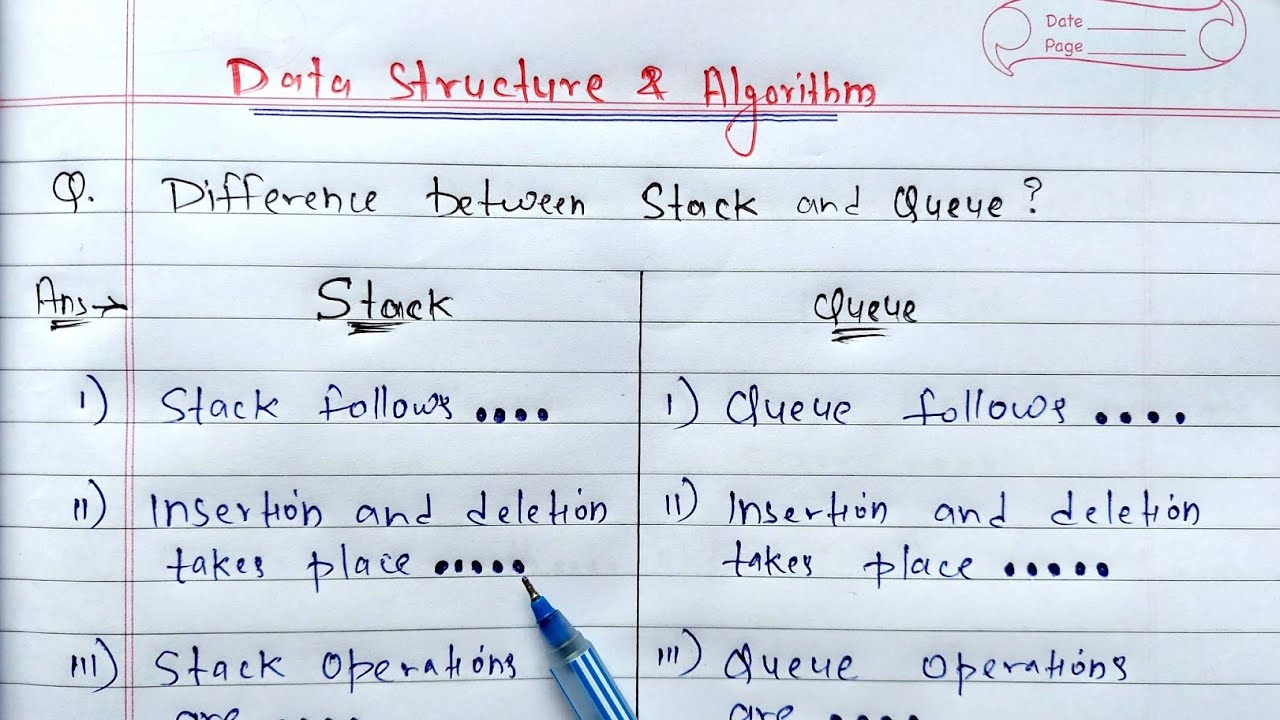 Date
Page
Data Structure & Algorithm
Q. Difference between Stack and Queue?
Ans→
Stack
I) Stack follows ....
II) Insertion and deletion
takes place .....
III) Stack operations
are ....
Queue
I) Queue follows ....
II) Insertion and deletion
takes place .....
III) Queue operations
are ....